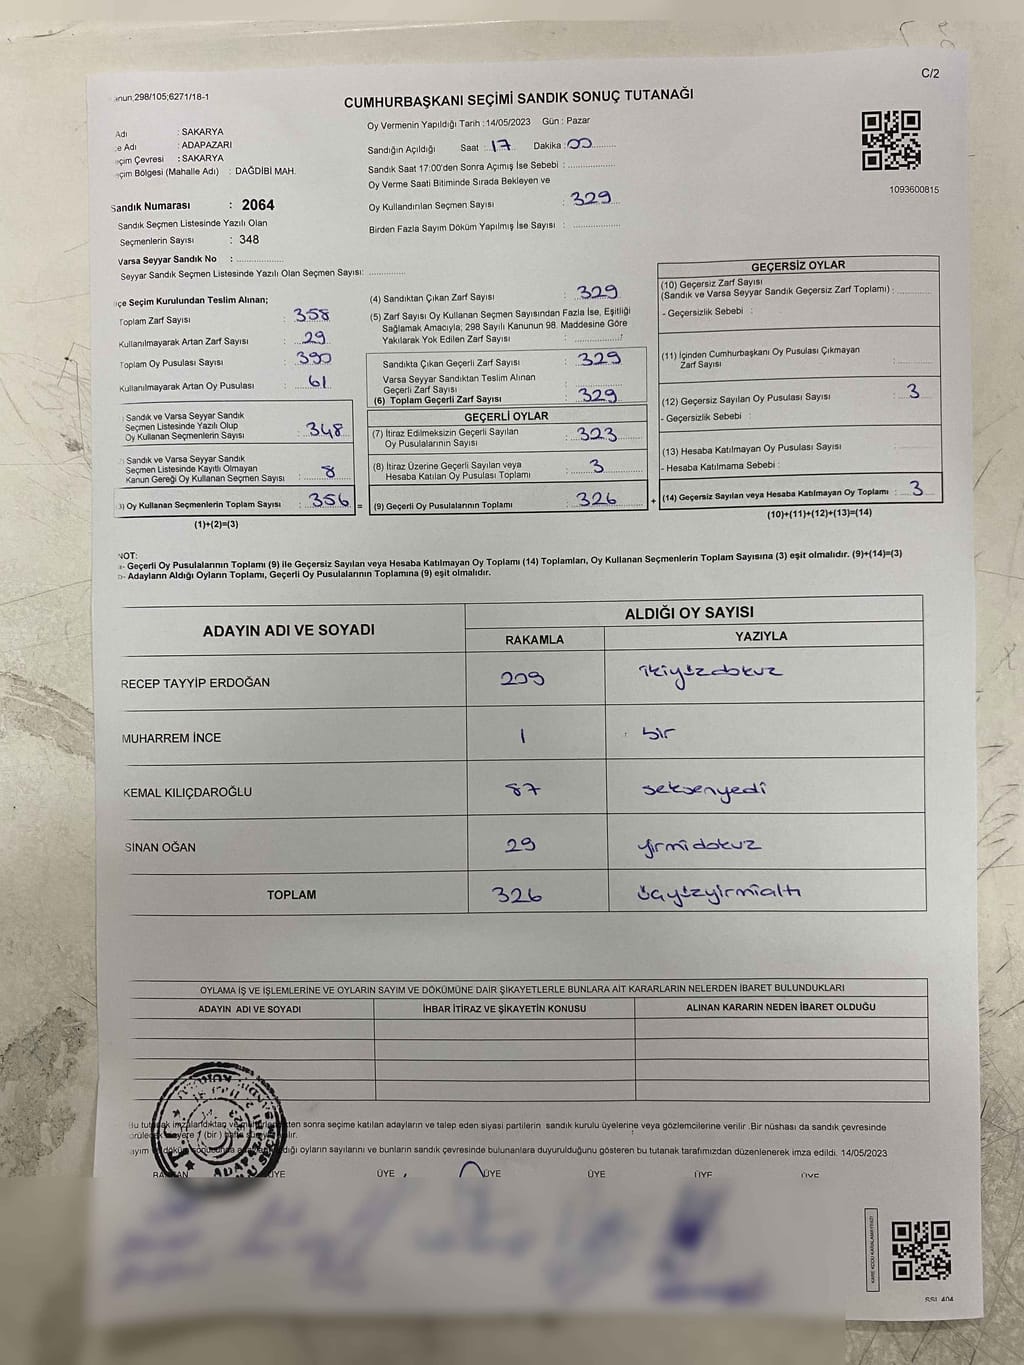 298/105;6271/18-1
C/2
CUMHURBAŞKANI SEÇİMİ SANDIK SONUÇ TUTANAĞI
Adı : SAKARYA
Adı : ADAPAZARI
Çevresi : SAKARYA
Bölgesi (Mahalle Adı) : DAĞDİBİ MAH.
Sandık Numarası : 2064
Sandık Seçmen Listesinde Yazılı Olan
Seçmenlerin Sayısı : 348
Varsa Seyyar Sandık No :
Seyyar Sandık Seçmen Listesinde Yazılı Olan Seçmen Sayısı:
Oy Vermenin Yapıldığı Tarih :14/05/2023 Gün : Pazar
Sandığın Açıldığı Saat : 17 Dakika : 00
Sandık Saat 17:00'den Sonra Açımış İse Sebebi :
Oy Verme Saati Bitiminde Sırada Bekleyen ve
Oy Kullandırılan Seçmen Sayısı : 329
Birden Fazla Sayım Döküm Yapılmış İse Sayısı :
1093600815
Seçim Kurulundan Teslim Alınan;
Toplam Zarf Sayısı : 358
Kullanılmayarak Artan Zarf Sayısı : 29
Toplam Oy Pusulası Sayısı : 390
Kullanılmayarak Artan Oy Pusulası : 61
Sandık ve Varsa Seyyar Sandık
Seçmen Listesinde Yazılı Olup
Oy Kullanan Seçmenlerin Sayısı : 348
Sandık ve Varsa Seyyar Sandık
Seçmen Listesinde Kayıtlı Olmayan
Kanun Gereği Oy Kullanan Seçmen Sayısı : 8
) Oy Kullanan Seçmenlerin Toplam Sayısı : 356 =
(1)+(2)=(3)
(4) Sandıktan Çıkan Zarf Sayısı : 329
(5) Zarf Sayısı Oy Kullanan Seçmen Sayısından Fazla İse, Eşitliği
Sağlamak Amacıyla; 298 Sayılı Kanunun 98. Maddesine Göre
Yakılarak Yok Edilen Zarf Sayısı :
Sandıkta Çıkan Geçerli Zarf Sayısı : 329
Varsa Seyyar Sandıktan Teslim Alınan
Geçerli Zarf Sayısı :
(6) Toplam Geçerli Zarf Sayısı : 329
GEÇERLİ OYLAR
(7) İtiraz Edilmeksizin Geçerli Sayılan
Oy Pusulalarının Sayısı : 323
(8) İtiraz Üzerine Geçerli Sayılan veya
Hesaba Katılan Oy Pusulası Toplamı : 3
(9) Geçerli Oy Pusulalarının Toplamı : 326 +
GEÇERSİZ OYLAR
(10) Geçersiz Zarf Sayısı
(Sandık ve Varsa Seyyar Sandık Geçersiz Zarf Toplamı) :
- Geçersizlik Sebebi :
(11) İçinden Cumhurbaşkanı Oy Pusulası Çıkmayan
Zarf Sayısı :
(12) Geçersiz Sayılan Oy Pusulası Sayısı : 3
- Geçersizlik Sebebi :
(13) Hesaba Katılmayan Oy Pusulası Sayısı :
- Hesaba Katılmama Sebebi :
(14) Geçersiz Sayılan veya Hesaba Katılmayan Oy Toplamı : 3
(10)+(11)+(12)+(13)=(14)
NOT:
a- Geçerli Oy Pusulalarının Toplamı (9) ile Geçersiz Sayılan veya Hesaba Katılmayan Oy Toplamı (14) Toplamları, Oy Kullanan Seçmenlerin Toplam Sayısına (3) eşit olmalıdır. (9)+(14)=(3)
b- Adayların Aldığı Oyların Toplamı, Geçerli Oy Pusulalarının Toplamına (9) eşit olmalıdır.
ADAYIN ADI VE SOYADI
ALDIĞI OY SAYISI
RAKAMLA YAZIYLA
RECEP TAYYİP ERDOĞAN 209 ikiyüzdokuz
MUHARREM İNCE 1 bir
KEMAL KILIÇDAROĞLU 87 seksenyedi
SİNAN OĞAN 29 yirmidokuz
TOPLAM 326 üçyüzyirmialtı
OYLAMA İŞ VE İŞLEMLERİNE VE OYLARIN SAYIM VE DÖKÜMÜNE DAİR ŞİKAYETLERLE BUNLARA AİT KARARLARIN NELERDEN İBARET BULUNDUKLARI
ADAYIN ADI VE SOYADI İHBAR İTİRAZ VE ŞİKAYETİN KONUSU ALINAN KARARIN NEDEN İBARET OLDUĞU
sonra seçime katılan adayların ve talep eden siyasi partilerin sandık kurulu üyelerine veya gözlemcilerine verilir .Bir nüshası da sandık çevresinde
1 (bir)
oyların sayılarını ve bunların sandık çevresinde bulunanlara duyurulduğunu gösteren bu tutanak tarafımızdan düzenlenerek imza edildi. 14/05/2023
ÜYE ÜYE ÜYE ÜYE ÜYE ÜYE
ADAPAZARI